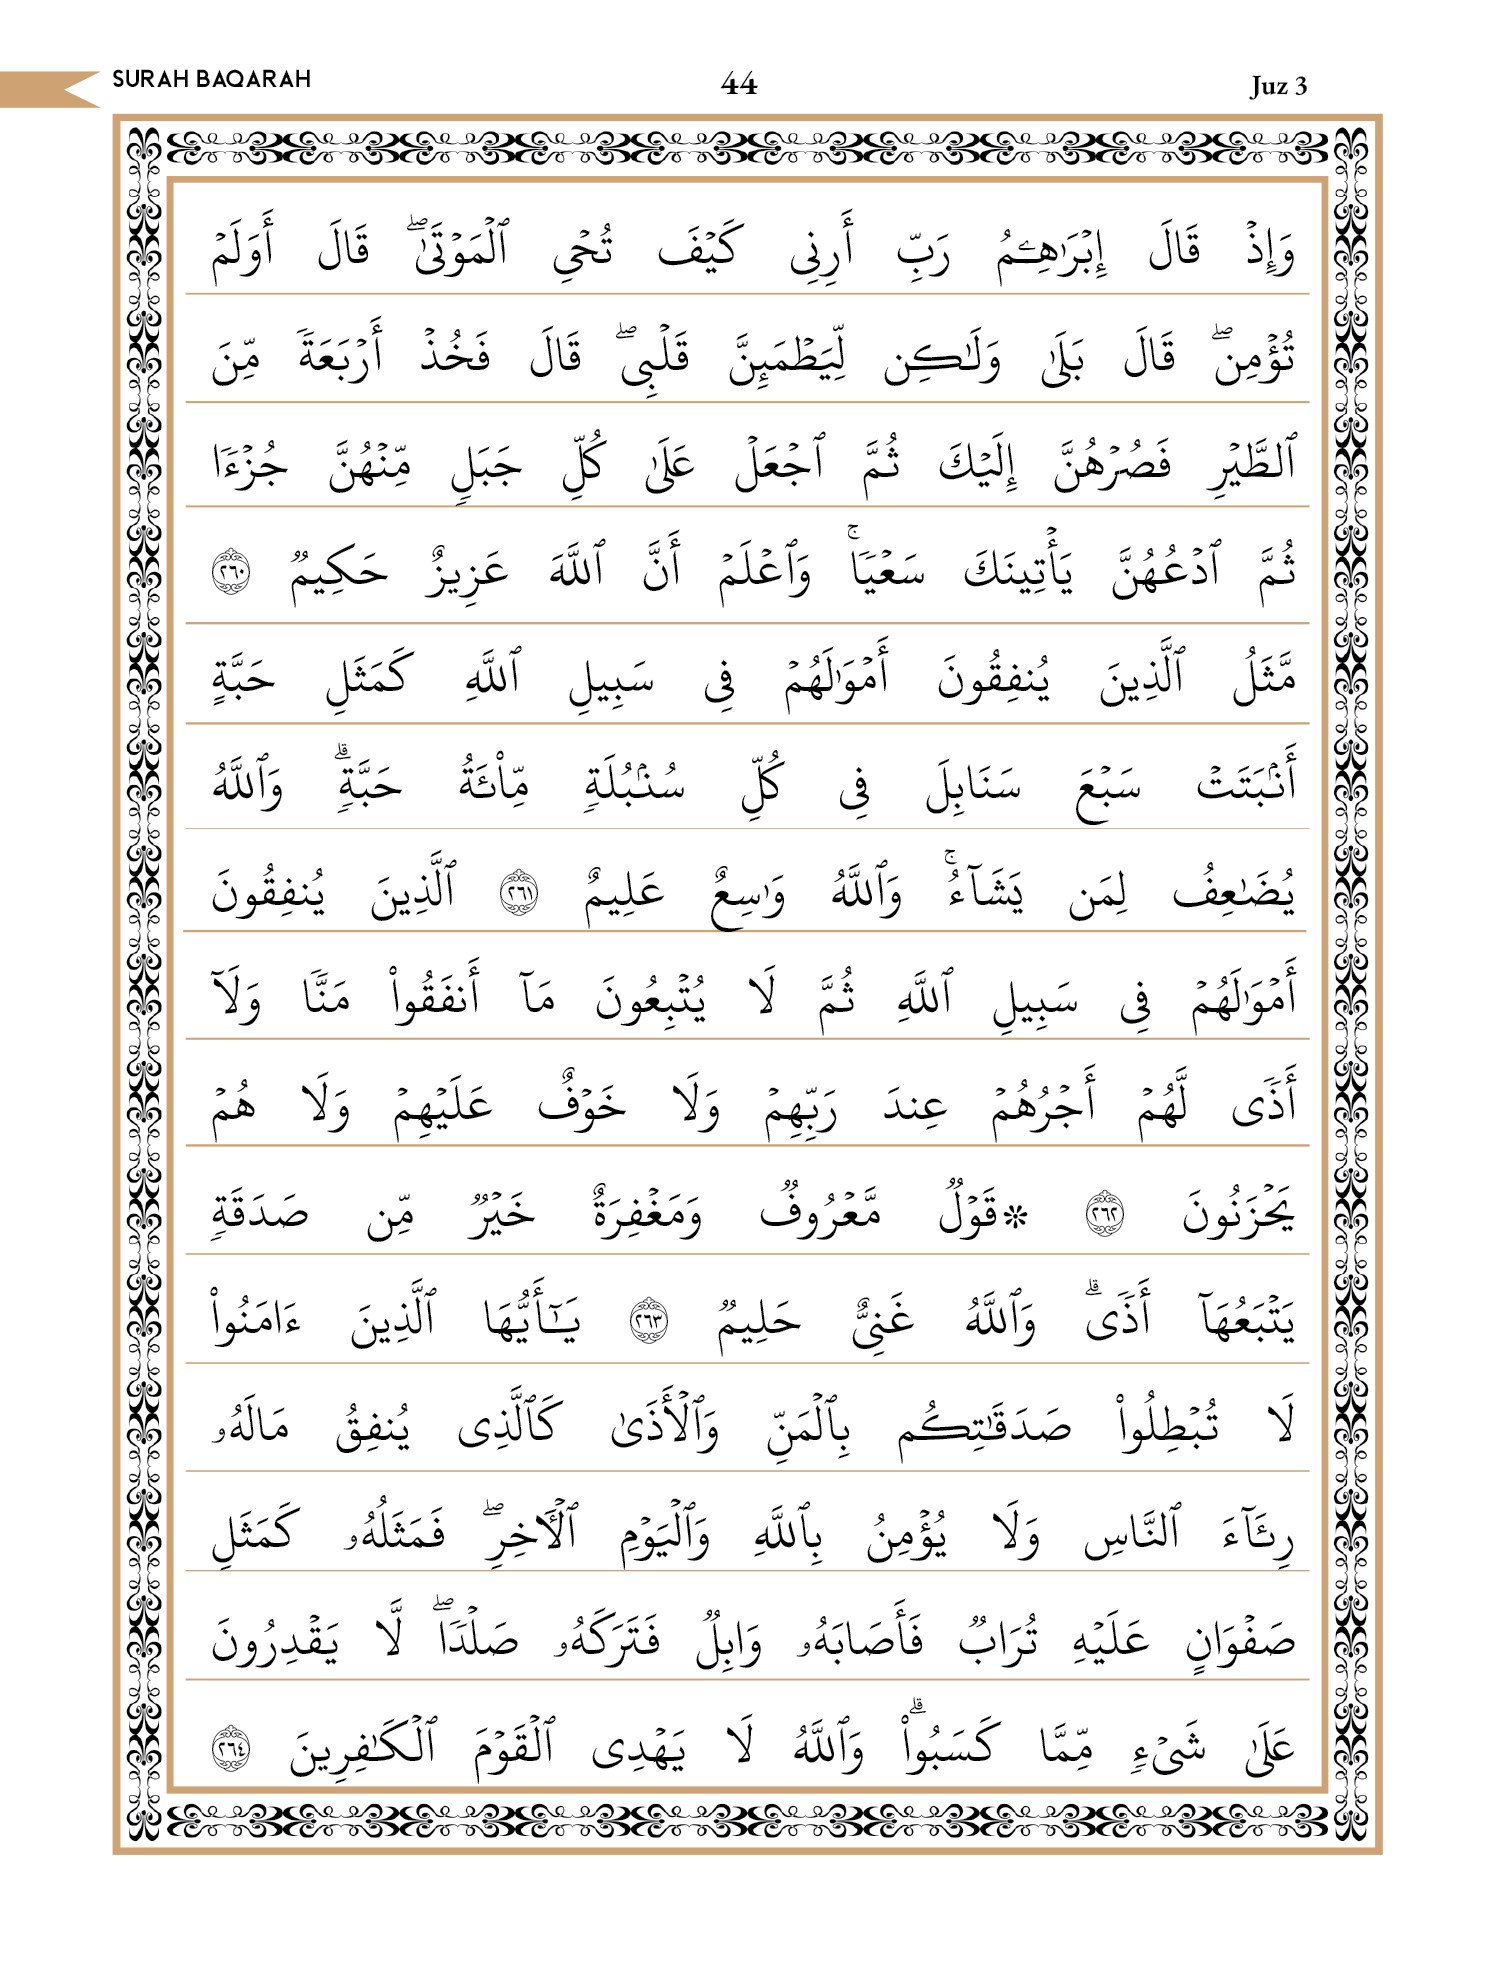 SURAH BAQARAH 44 Juz 3
وَإِذۡ قَالَ إِبۡرَٰهِـۧمُ رَبِّ أَرِنِي كَيۡفَ تُحۡيِ ٱلۡمَوۡتَىٰۖ قَالَ أَوَلَمۡ
تُؤۡمِنۖ قَالَ بَلَىٰ وَلَٰكِن لِّيَطۡمَئِنَّ قَلۡبِيۖ قَالَ فَخُذۡ أَرۡبَعَةٗ مِّنَ
ٱلطَّيۡرِ فَصُرۡهُنَّ إِلَيۡكَ ثُمَّ ٱجۡعَلۡ عَلَىٰ كُلِّ جَبَلٖ مِّنۡهُنَّ جُزۡءٗا
ثُمَّ ٱدۡعُهُنَّ يَأۡتِينَكَ سَعۡيٗاۚ وَٱعۡلَمۡ أَنَّ ٱللَّهَ عَزِيزٌ حَكِيمٞ ٢٦٠
مَّثَلُ ٱلَّذِينَ يُنفِقُونَ أَمۡوَٰلَهُمۡ فِي سَبِيلِ ٱللَّهِ كَمَثَلِ حَبَّةٍ
أَنۢبَتَتۡ سَبۡعَ سَنَابِلَ فِي كُلِّ سُنۢبُلَةٖ مِّاْئَةُ حَبَّةٖۗ وَٱللَّهُ
يُضَٰعِفُ لِمَن يَشَآءُۚ وَٱللَّهُ وَٰسِعٌ عَلِيمٌ ٢٦١ ٱلَّذِينَ يُنفِقُونَ
أَمۡوَٰلَهُمۡ فِي سَبِيلِ ٱللَّهِ ثُمَّ لَا يُتۡبِعُونَ مَآ أَنفَقُواْ مَنّٗا وَلَآ
أَذٗى لَّهُمۡ أَجۡرُهُمۡ عِندَ رَبِّهِمۡ وَلَا خَوۡفٌ عَلَيۡهِمۡ وَلَا هُمۡ
يَحۡزَنُونَ ٢٦٢ ۞قَوۡلٞ مَّعۡرُوفٞ وَمَغۡفِرَةٌ خَيۡرٞ مِّن صَدَقَةٖ
يَتۡبَعُهَآ أَذٗىۗ وَٱللَّهُ غَنِيٌّ حَلِيمٞ ٢٦٣ يَٰٓأَيُّهَا ٱلَّذِينَ ءَامَنُواْ
لَا تُبۡطِلُواْ صَدَقَٰتِكُم بِٱلۡمَنِّ وَٱلۡأَذَىٰ كَٱلَّذِي يُنفِقُ مَالَهُۥ
رِئَآءَ ٱلنَّاسِ وَلَا يُؤۡمِنُ بِٱللَّهِ وَٱلۡيَوۡمِ ٱلۡأٓخِرِۖ فَمَثَلُهُۥ كَمَثَلِ
صَفۡوَانٍ عَلَيۡهِ تُرَابٞ فَأَصَابَهُۥ وَابِلٞ فَتَرَكَهُۥ صَلۡدٗاۖ لَّا يَقۡدِرُونَ
عَلَىٰ شَيۡءٖ مِّمَّا كَسَبُواْۗ وَٱللَّهُ لَا يَهۡدِي ٱلۡقَوۡمَ ٱلۡكَٰفِرِينَ ٢٦٤